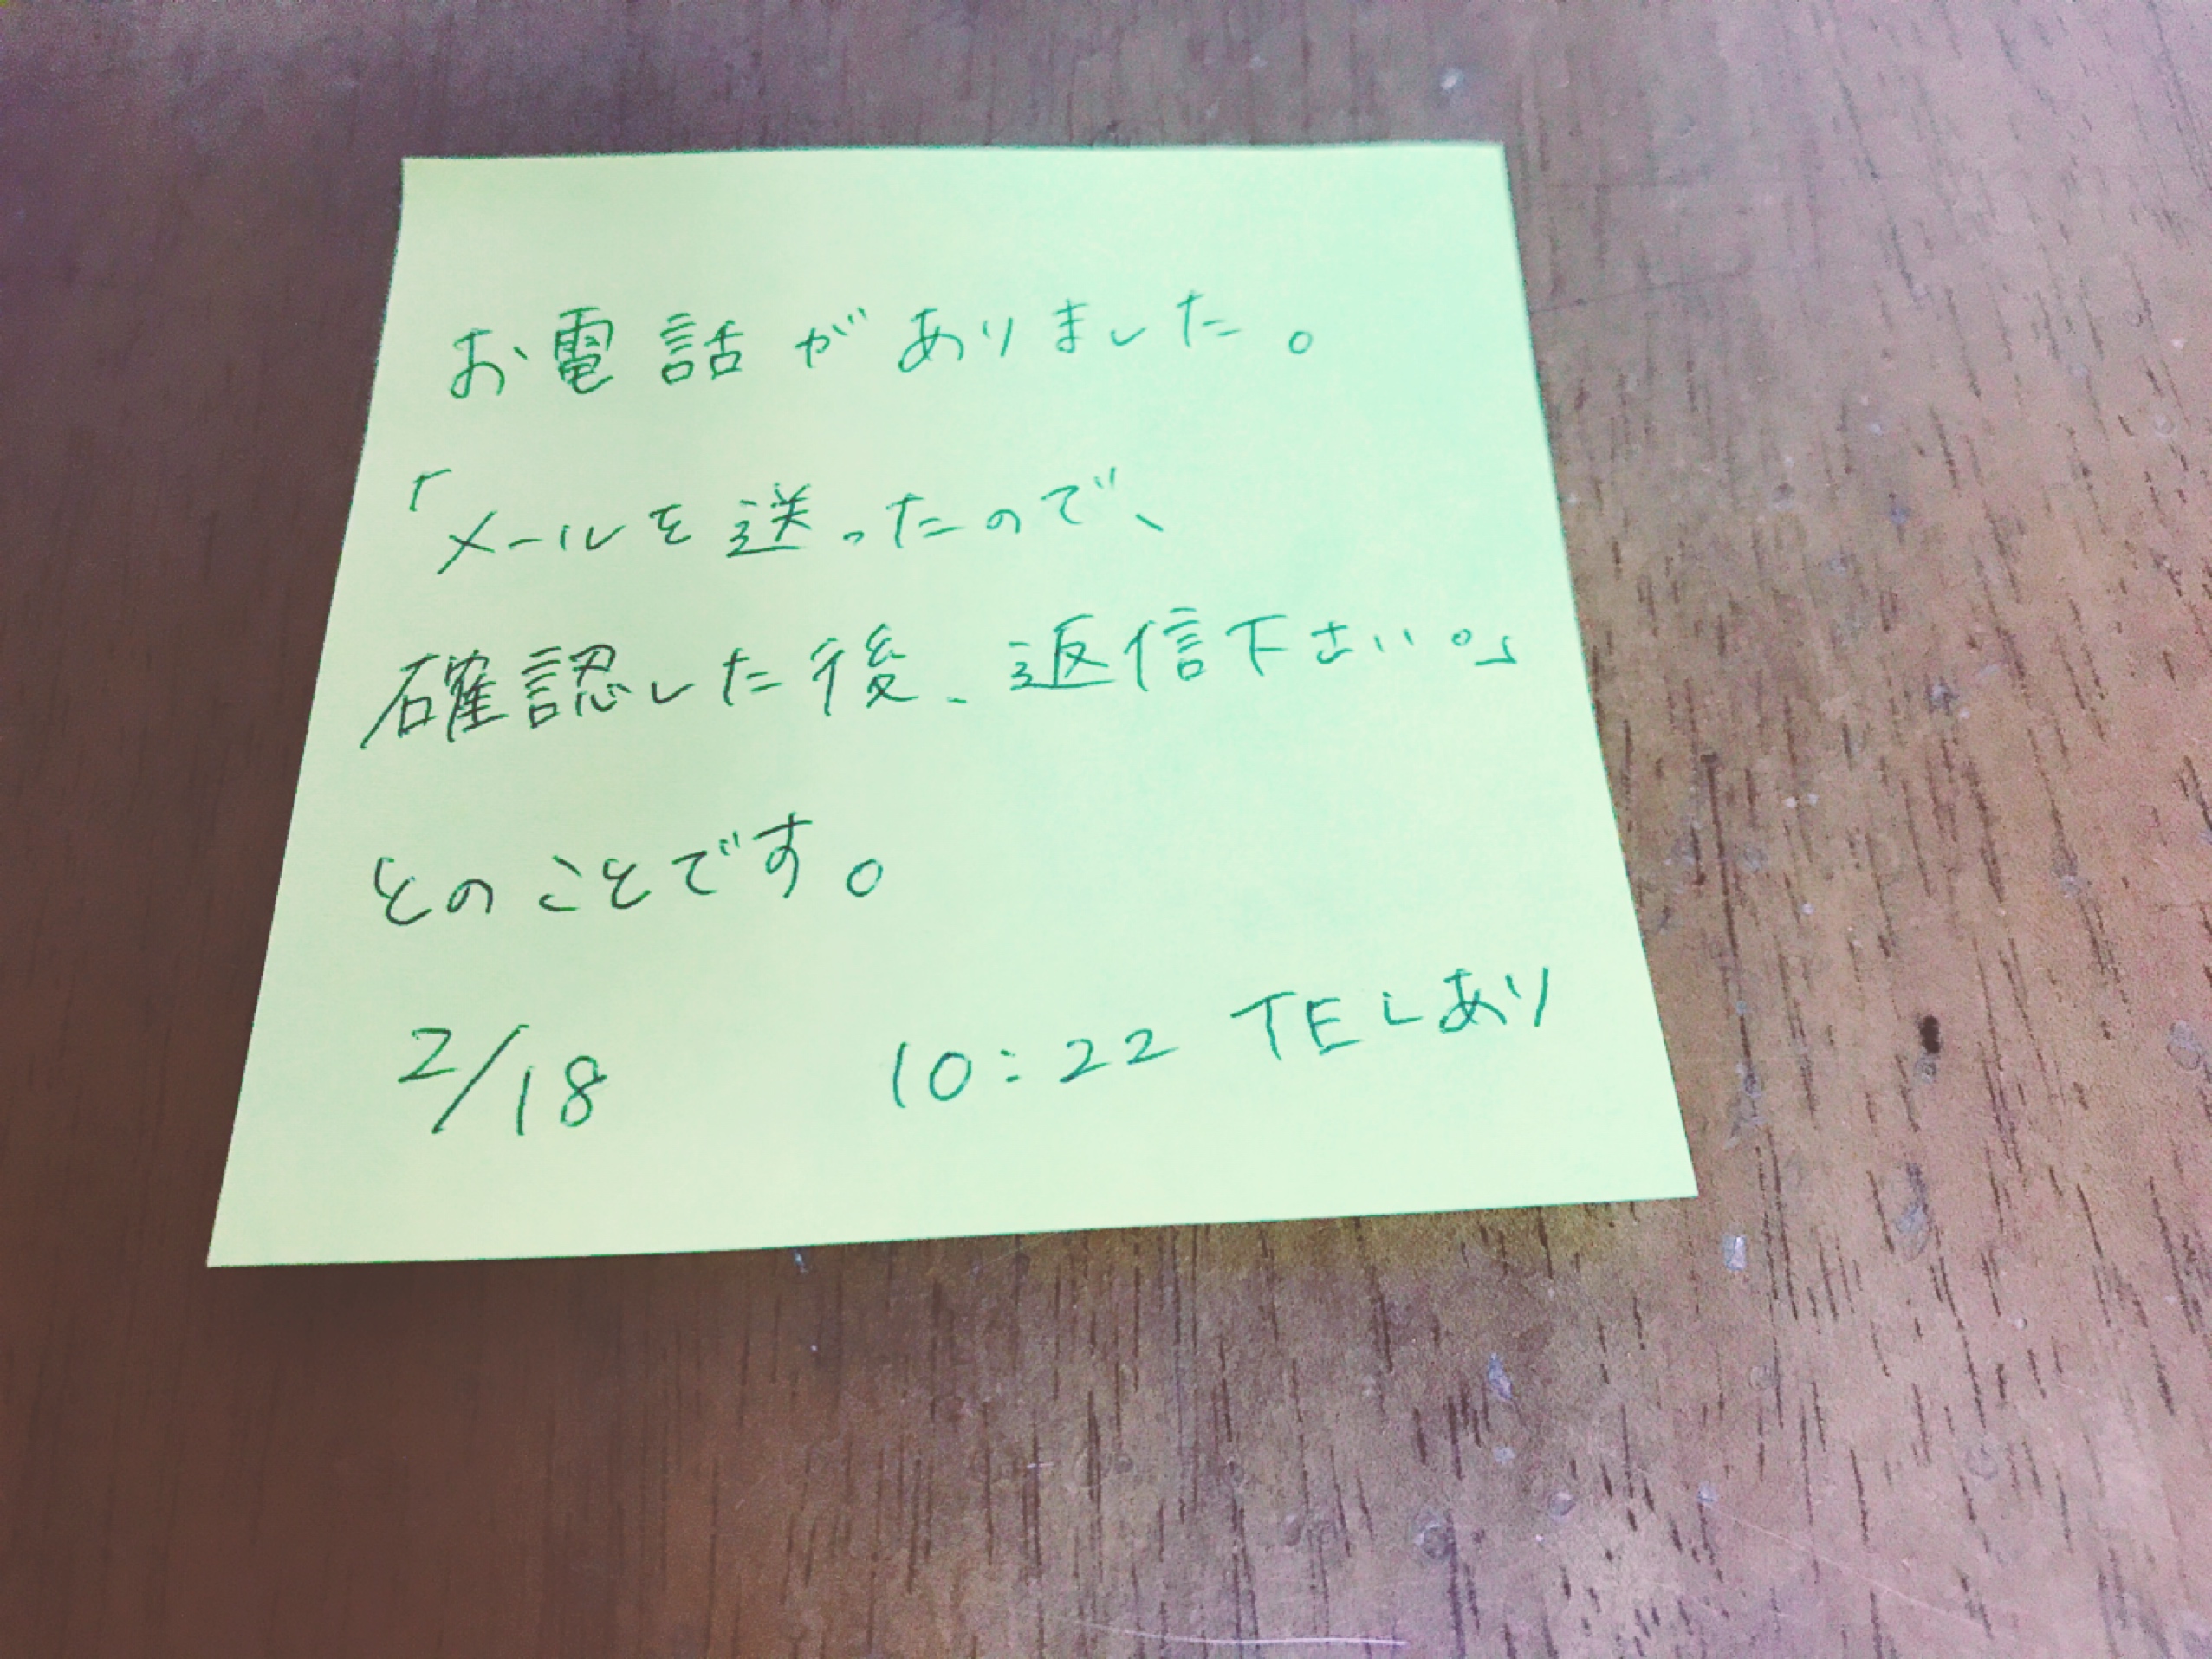 お電話がありました。
「メールを送ったので、
確認した後、返信下さい。」
とのことです。
2/18 10:22 TELあり